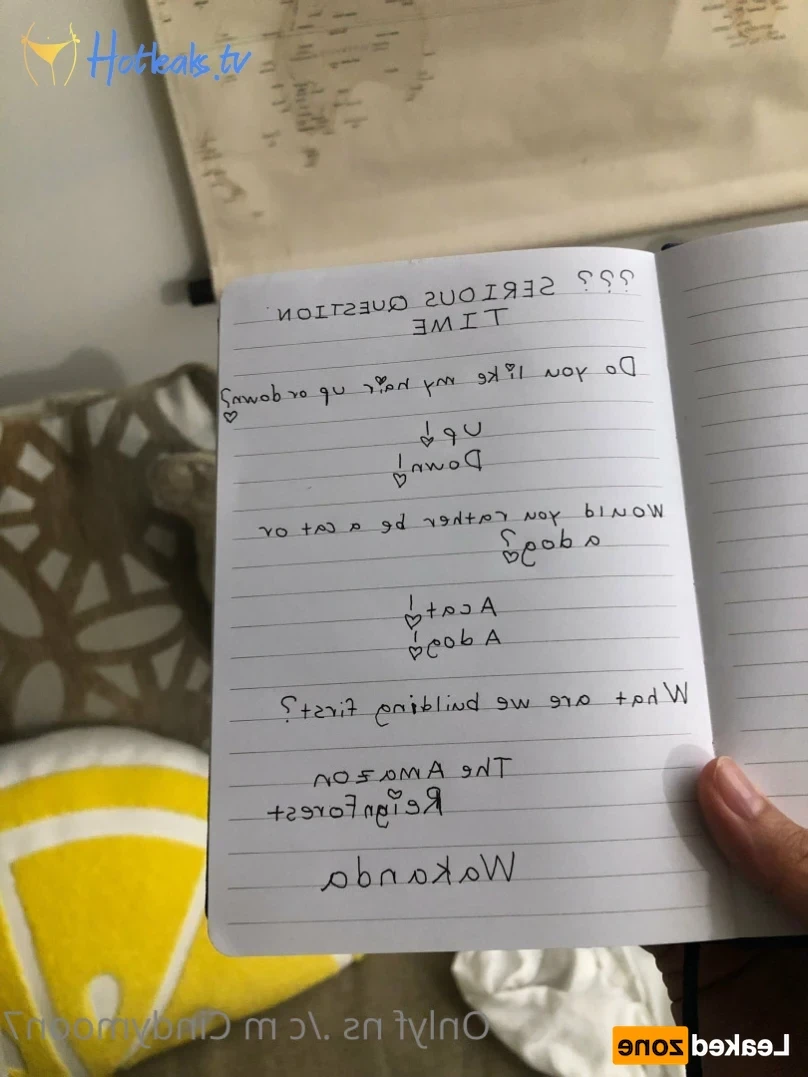 Hotleaks.tv
??? SERIOUS QUESTION
TIME
Do you like my hair up or down?
up!
Down!
Would you rather be a cat or
a dog?
A cat!
A dog!
What are we building first?
The Amazon
Reignforest
Wakanda
Onlyf ns ./c m Cindymoon7
Leakedzone